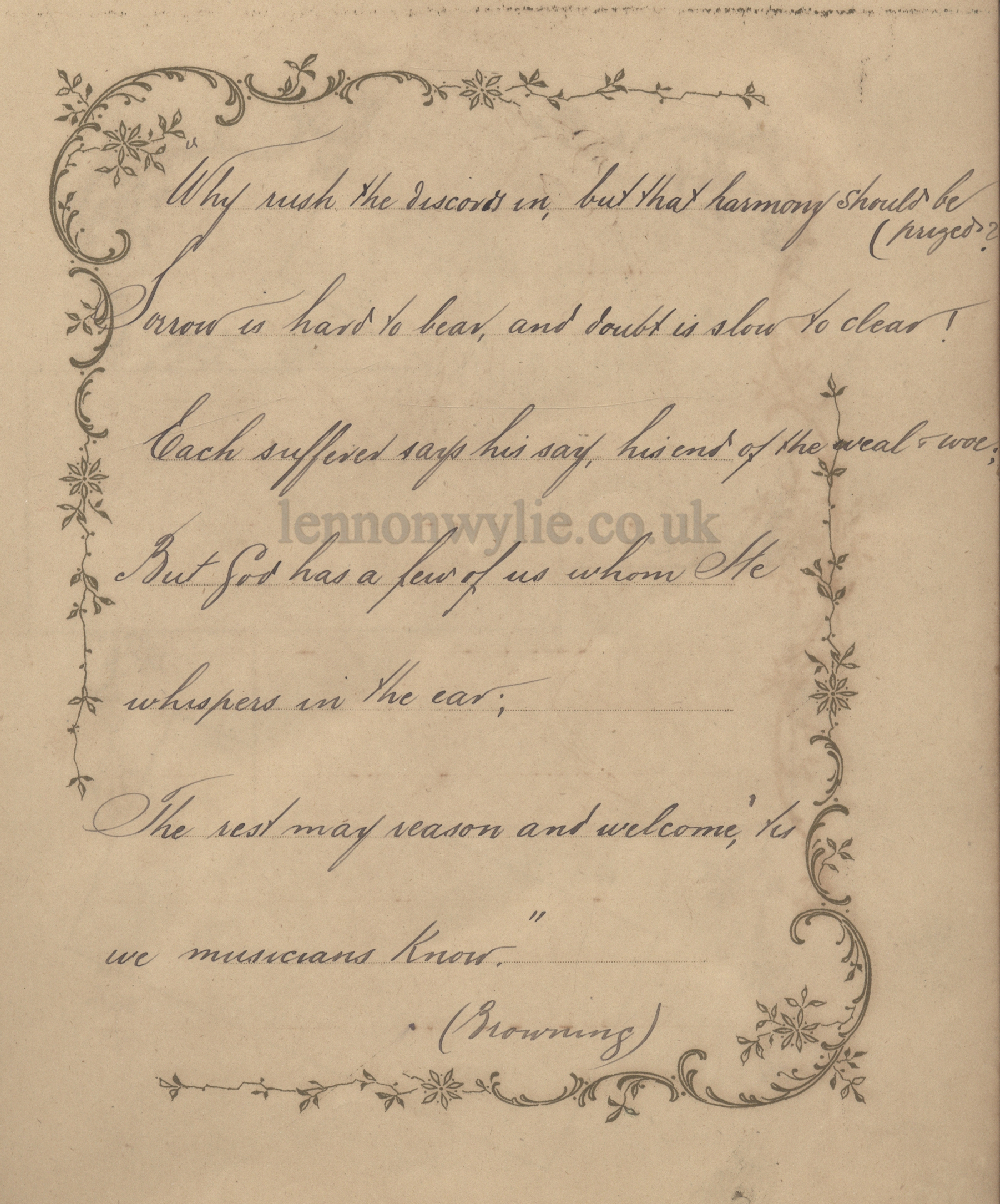 "Why rush the discords in, but that harmony should be
(prized?
Sorrow is hard to bear, and doubt is slow to clear!
Each sufferer says his say, his end of the weal & woe;
lennonwylie.co.uk
But God has a few of us whom He
whispers in the ear;
The rest may reason and welcome, 'tis
we musicians know."
(Browning)